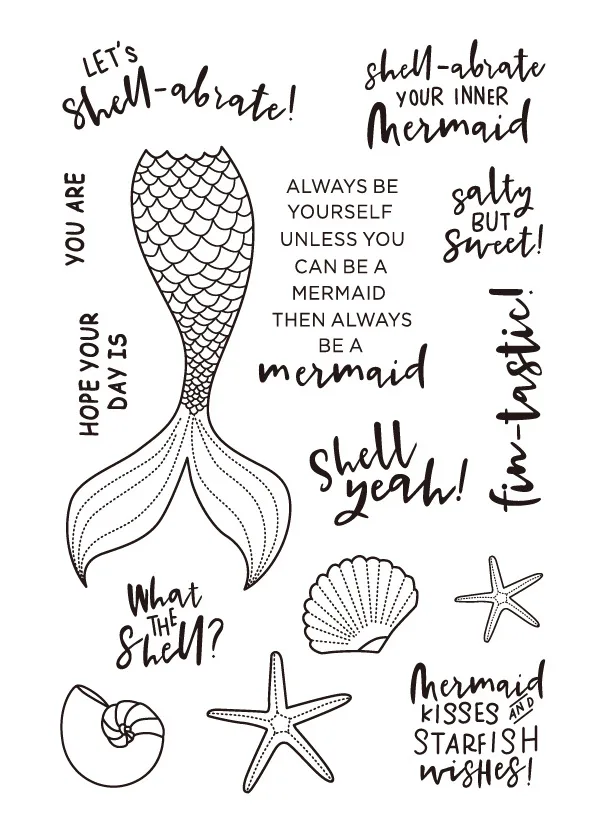 LET'S
shell-abrate!
shell-abrate
YOUR INNER
Mermaid
YOU ARE
ALWAYS BE
YOURSELF
UNLESS YOU
CAN BE A
MERMAID
THEN ALWAYS
BE A
mermaid
salty
BUT
Sweet!
HOPE YOUR
DAY IS
fin-tastic!
Shell
yeah!
What
THE
Shell?
Mermaid
KISSES AND
STARFISH
wisHes!